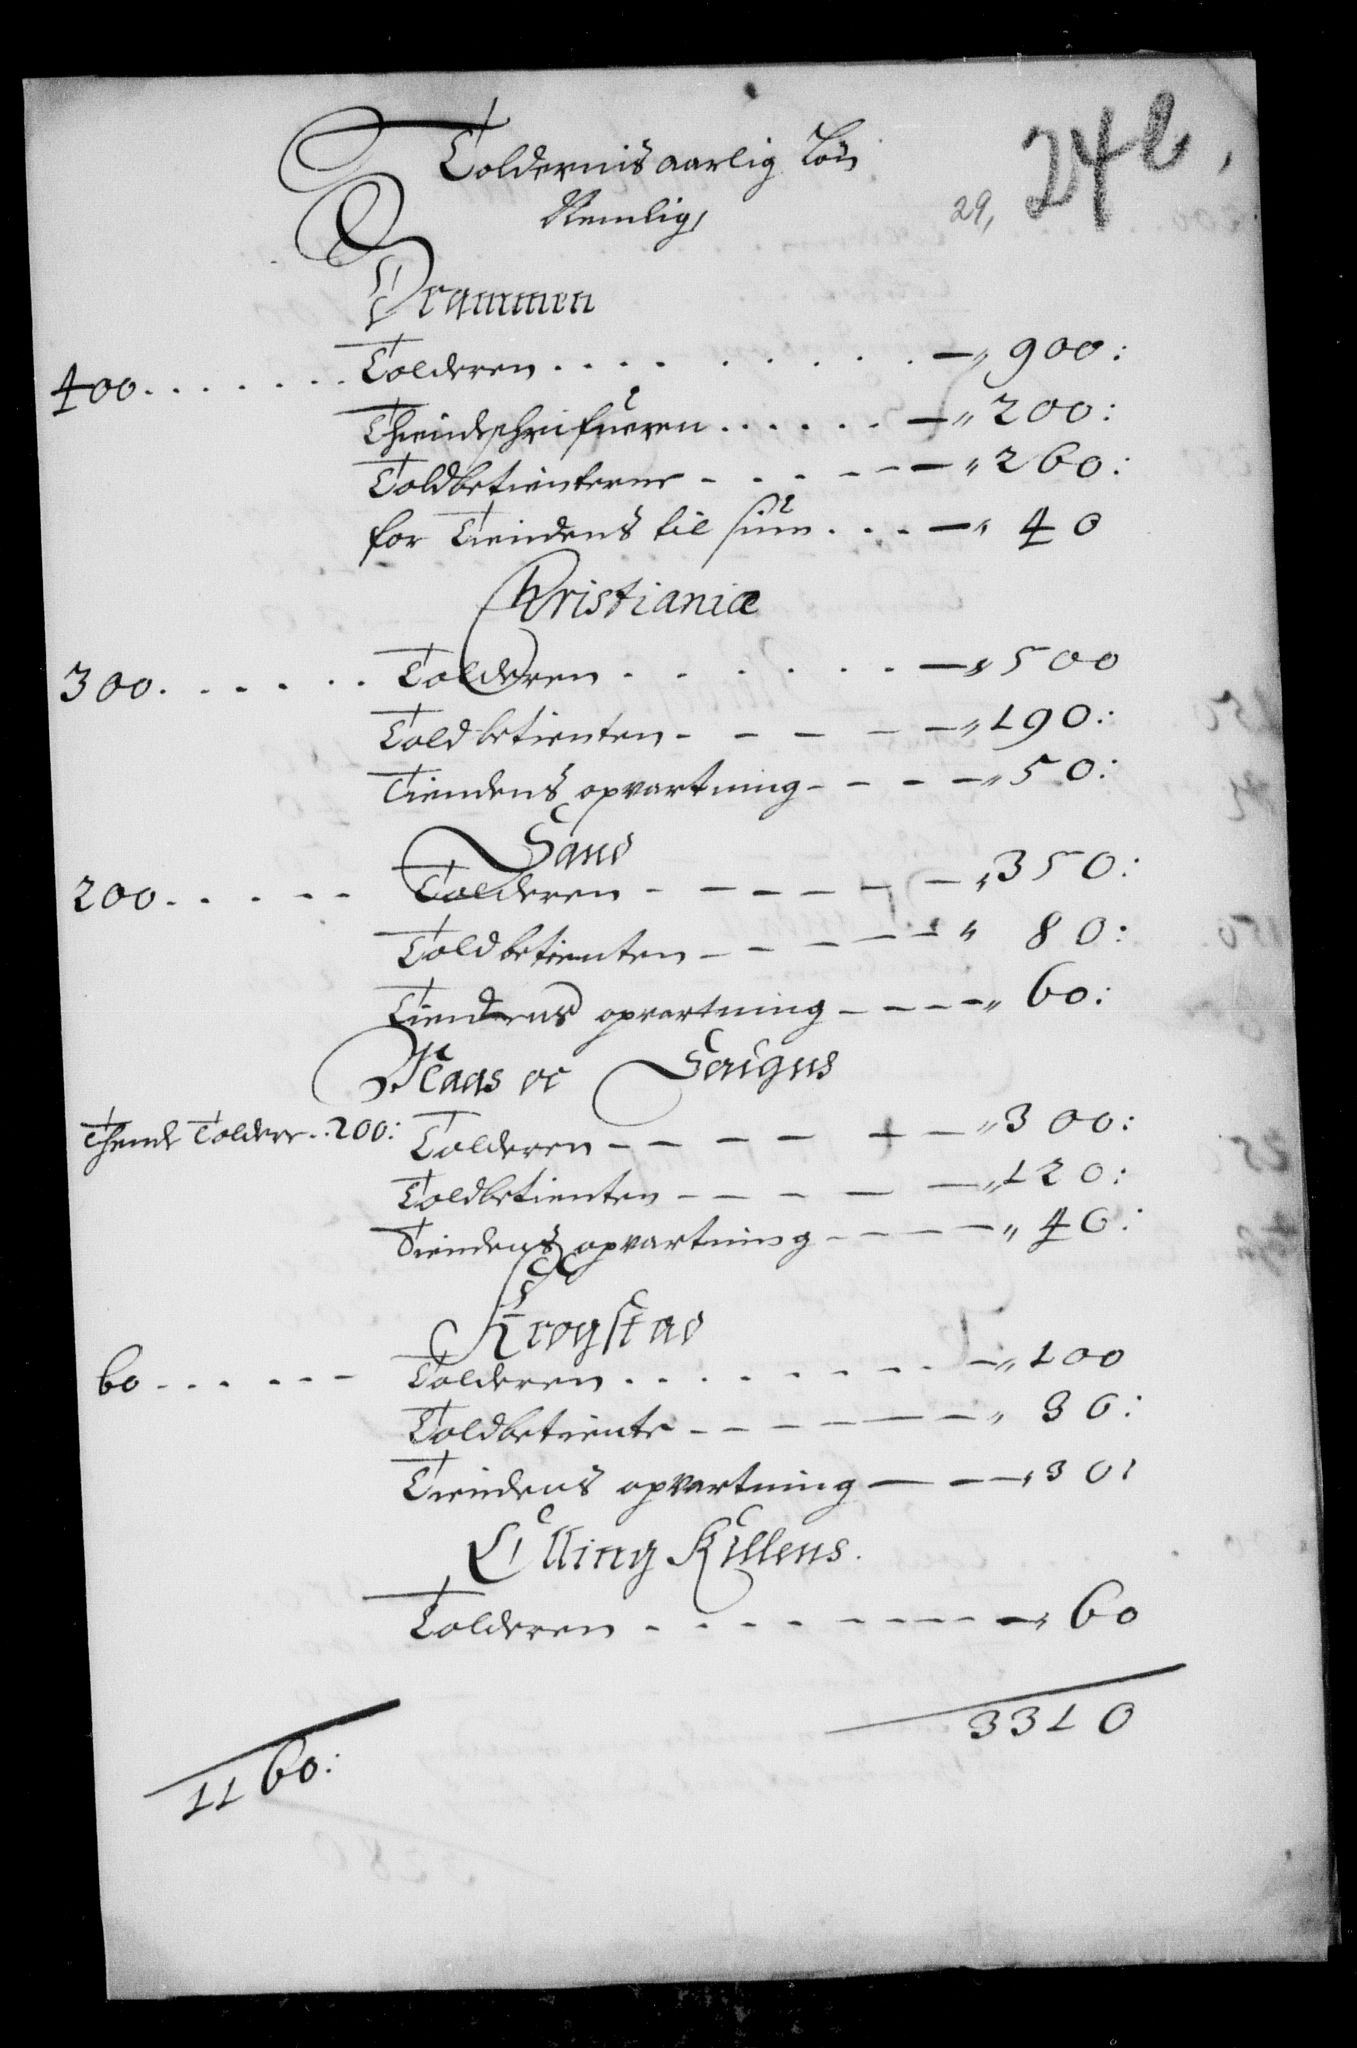 24b,
29,
Toldernis aarlig Løn
Nemlig,
Drammen
400. . . . . . . Tolderen . . . . . . . . . — " 900:
Thiendschrifueren . . . . . . — " 200:
Toldbetienterne - . - - - — " 260:
for Tiendens til siun . . . — " 40
Christianiæ
300. . . . . . Tolderen . . . . . . — " 500
Toldbetienten - - - - - " 190:
Tiendens opvartning - - - - " 50:
Sand
200. . . . - - Tolderen - - - - - - " 350:
Toldbetienten - - - - - - " 80:
Tiendens opvartning - - - - " 60:
Aaas oc Saigns
Thende Toldere . . 200: Tolderen - - - - - - " 300:
Toldbetienten - - - - - " 120:
Tiendens opvartning - - - - " 40:
Krogstad
60 - . . . - - - Tolderen . . . . - - - . - " 100
Toldbetiente - - - - - - " 30:
Tiendens opvartning — - — " 30:
Külling Killens.
Tolderen - . - . - - - - - " 60
3310
1160: